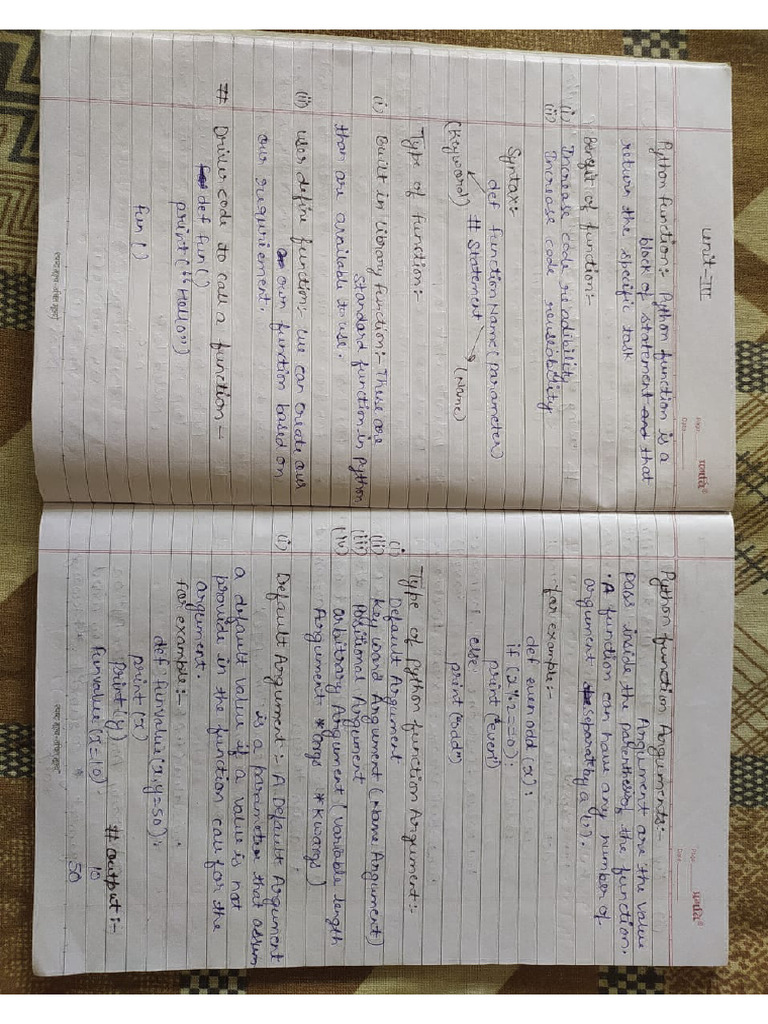 Unit-III
Python function:- Python function is a
block of statement that
return the specific task
Benefit of function:-
(i) Increase code readibility
(ii) Increase code reuseability
Syntax:-
def function Name (parameter)
(Keyword) # Statement (Name)
Type of function:-
(i) Built in library function:- These are
standard function in Python
that are available to use.
(ii) user define function:- we can create our
own function based on
our requirement.
# Driver code to call a function -
def fun ( )
print ("Hello")
fun ( )
Python function Arguments:-
Argument are the value
pass inside the parenthesis of the function.
• A function can have any number of
argument separate by a (,).
for example:-
def even odd (x):
if (x%2==0):
print ("even")
else:
print ("odd")
Type of python function Argument:-
(i) Default Argument
(ii) Key word Argument (Name Argument)
(iii) Positional Argument
(iv) arbitrary Argument (variable length
Argument *args *Kwargs)
(i) Default Argument:- A Default Argument
is a parameter that assum
a default value if a value is not
provide in the function call for the
argument.
for example:-
def funvalue (x, y=50):
print (x)
print (y) # output:-
funvalue (x=10) 10
50